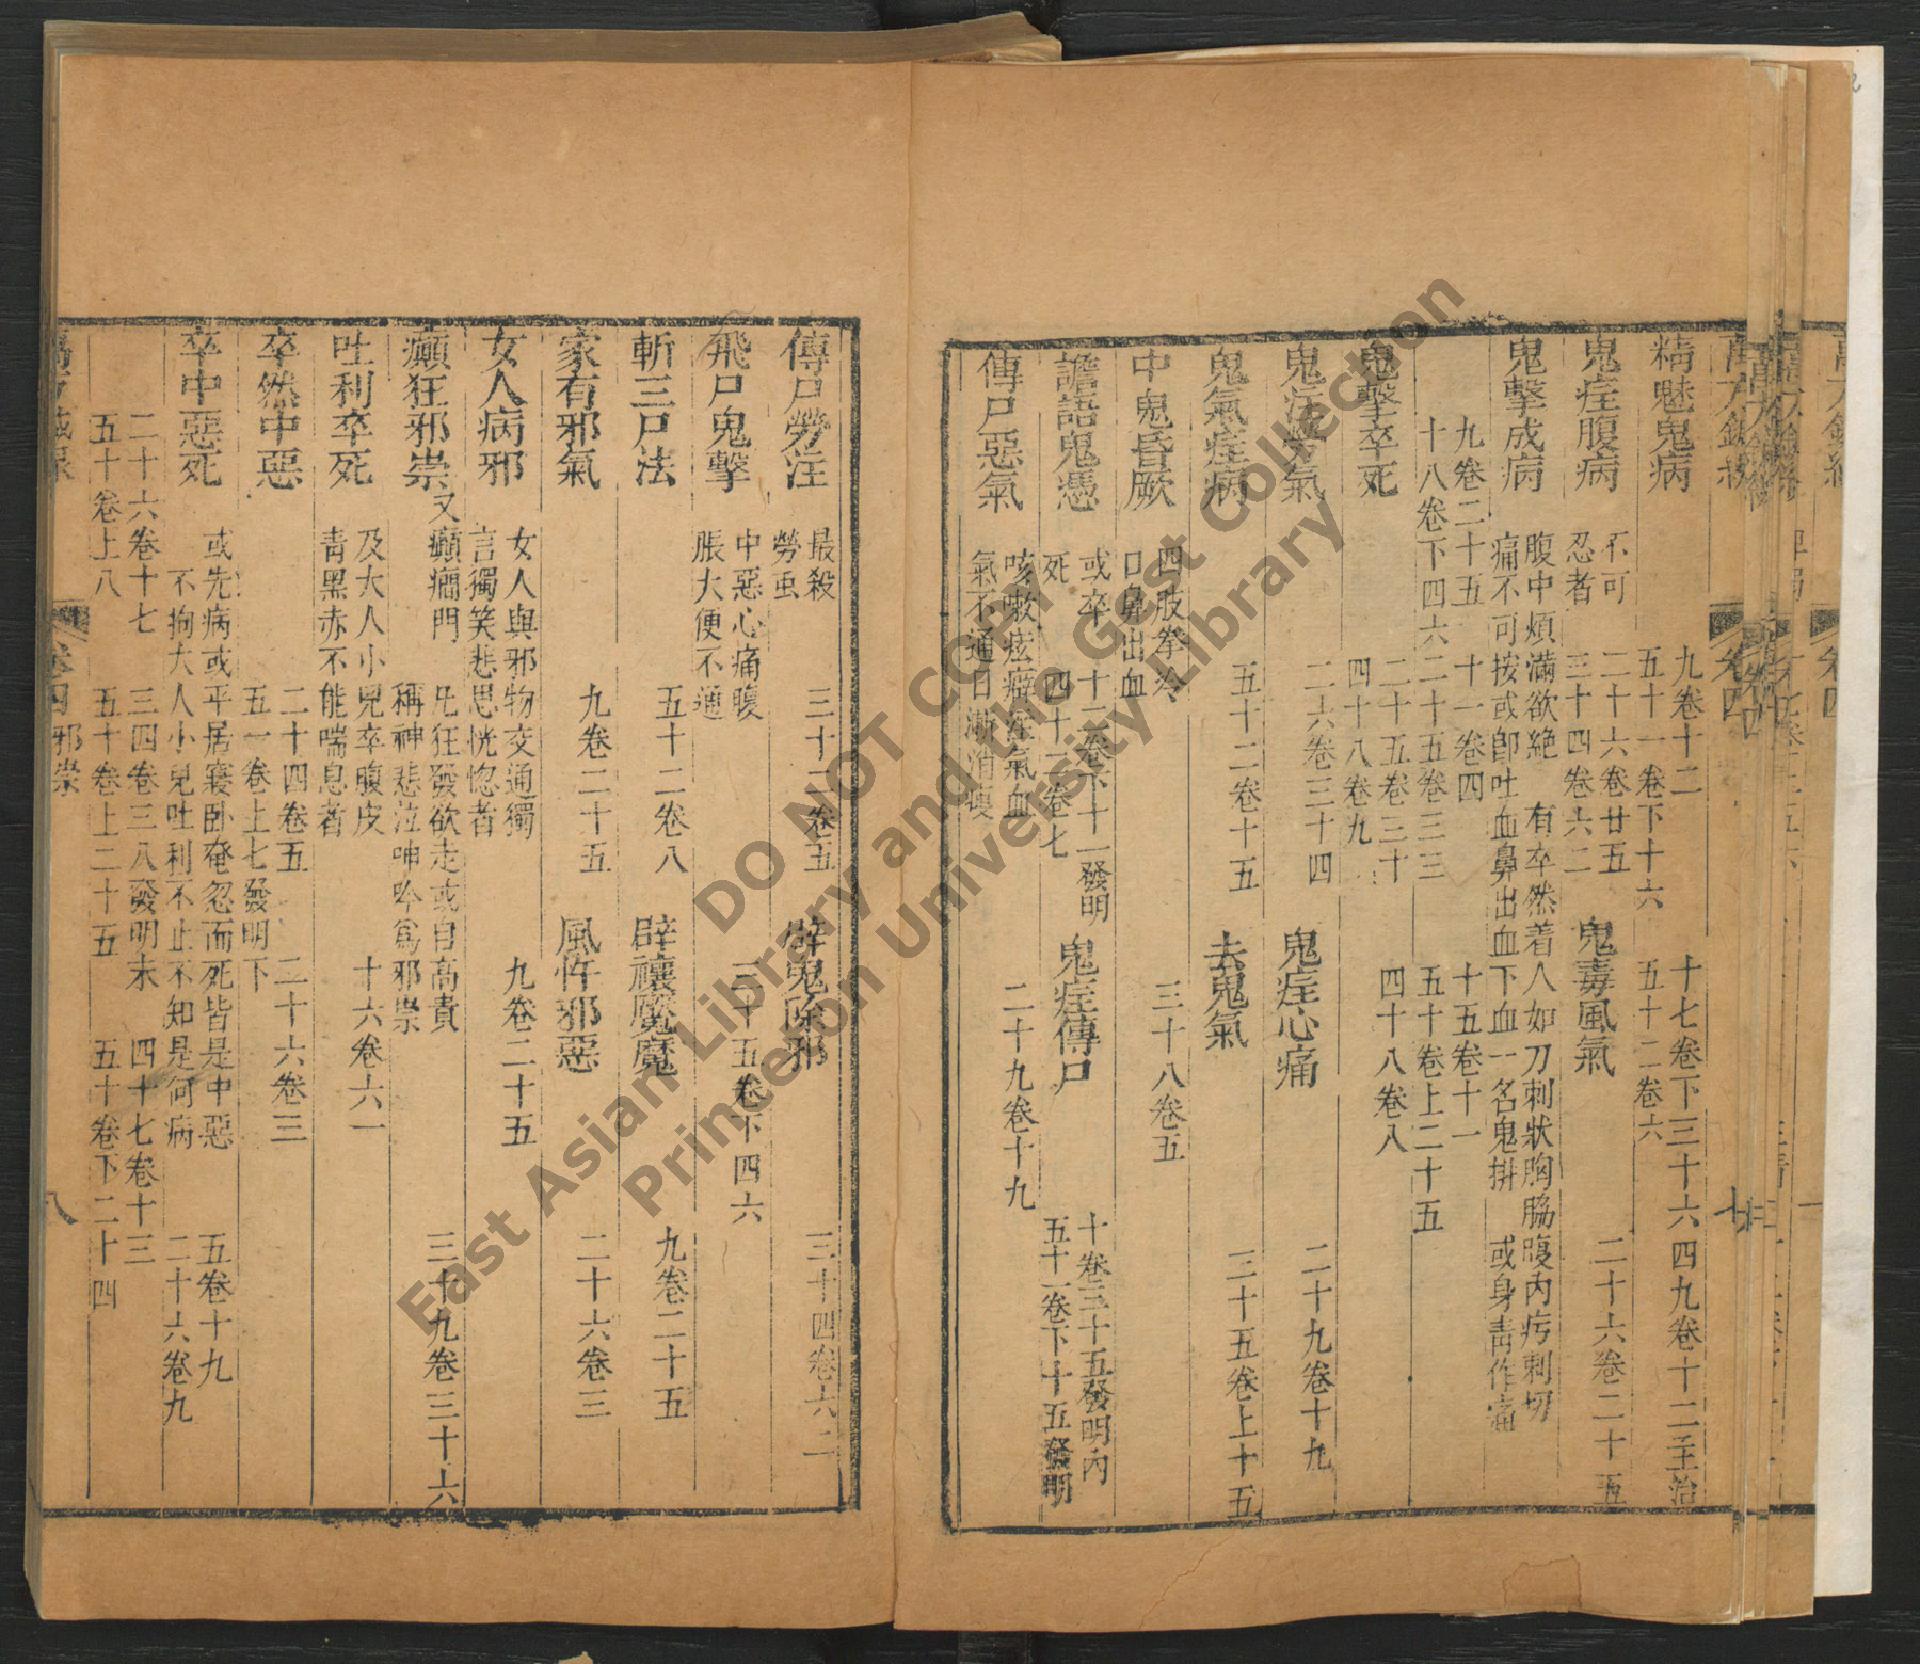 精魅鬼病 九卷十二 十七卷下三十六 四九卷十二主治
五十一卷下十六 五十二卷六
鬼疰腹病 不可忍者 二十六卷廿五 三十四卷六二 鬼毒風氣 二十六卷二十五
鬼擊成病 腹中煩滿欲絶 有卒然着人如刀刺狀胸脇腹內疞刺切
痛不可按或卽吐血鼻出血下血一名鬼排 或身靑作痛
九卷二十五 十一卷四 十五卷十一
十八卷下四六 二十五卷三三 五十卷上二十五
鬼擊卒死 二十五卷三十 四十八卷八
四十八卷九
鬼疰 氣 二六卷三十四 鬼疰心痛 二十九卷十九
鬼氣疰病 五十二卷十五 去鬼氣 三十五卷上十五
中鬼昏厥 四肢拳冷口鼻出血 三十八卷五
譫語鬼憑 或卒死 十二卷下十一發明 四十一卷七 鬼疰傳尸 十卷三十五發明內 五十一卷下十五發明
傳尸惡氣 咳嗽痃癖疰氣血氣不通日漸消瘦 二十九卷十九
傳尸勞注 最殺勞虫 三十二卷五 辟鬼除邪 三十四卷六二
飛尸鬼擊 中惡心痛腹脹大便不通 三十五卷下四六
斬三尸法 五十二卷八 辟禳魘魔 九卷二十五
家有邪氣 九卷二十五 風忤邪惡 二十六卷三
女人病邪 女人與邪物交通獨言獨笑悲思恍惚者 九卷二十五
癲狂邪祟 又癲癎門 凡狂發欲走或自高貴稱神悲泣呻吟爲邪祟 三十九卷三十六
吐利卒死 及大人小兒卒腹皮靑黑赤不能喘息者 十六卷六一
卒然中惡 二十四卷五 二十六卷三
五一卷上七發明下
卒中惡死 或先病或平居寢卧奄忽而死皆是中惡 五卷十九
不拘大人小兒吐利不止不知是何病 二十六卷九
二十六卷十七 三四卷三八發明末 四十七卷十三
五十卷上八 五十卷上二十五 五十卷下二十四
卷四 邪祟 八
DO NOT COPY
East Asian Library and the Gest Collection
Princeton University Library